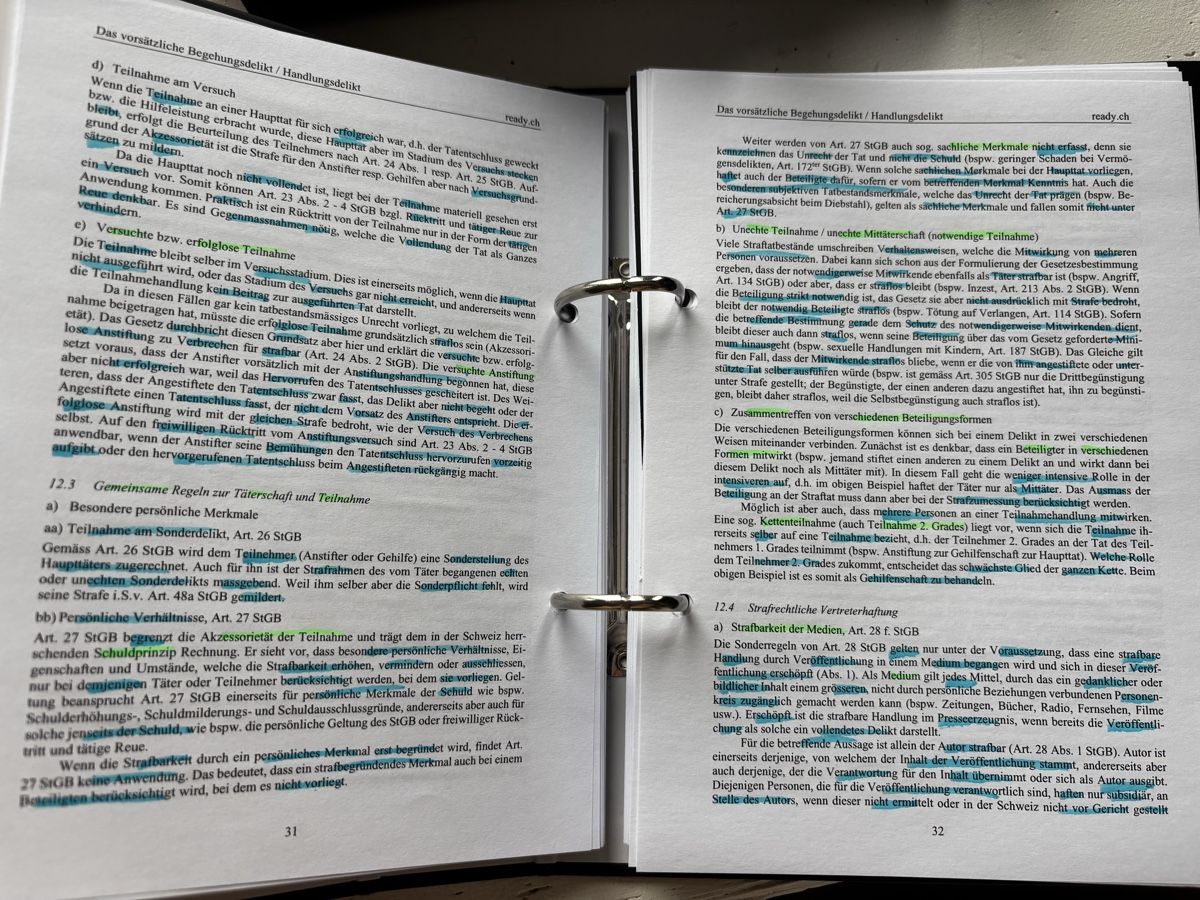 Das vorsätzliche Begehungsdelikt / Handlungsdelikt
ready.ch
d) Teilnahme am Versuch
Wenn die Teilnahme an einer Haupttat für sich erfolgreich war, d.h. der Tatentschluss geweckt
bzw. die Hilfeleistung erbracht wurde, diese Haupttat aber im Stadium des Versuchs stecken
bleibt, erfolgt die Beurteilung des Teilnehmers nach Art. 24 Abs. 1 resp. Art. 25 StGB. Auf-
grund der Akzessorietät ist die Strafe für den Anstifter resp. Gehilfen aber nach Versuchsgrund-
sätzen zu mildern.
Da die Haupttat noch nicht vollendet ist, liegt bei der Teilnahme materiell gesehen erst
ein Versuch vor. Somit können Art. 23 Abs. 2 - 4 StGB bzgl. Rücktritt und tätiger Reue zur
Anwendung kommen. Praktisch ist ein Rücktritt von der Teilnahme nur in der Form der tätigen
Reue denkbar. Es sind Gegenmassnahmen nötig, welche die Vollendung der Tat als Ganzes
verhindern.
e) Versuchte bzw. erfolglose Teilnahme
Die Teilnahme bleibt selber im Versuchsstadium. Dies ist einerseits möglich, wenn die Haupttat
nicht ausgeführt wird, oder das Stadium des Versuchs gar nicht erreicht, und andererseits wenn
die Teilnahmehandlung kein Beitrag zur ausgeführten Tat darstellt.
Da in diesen Fällen gar kein tatbestandsmässiges Unrecht vorliegt, zu welchem die Teil-
nahme beigetragen hat, müsste die erfolglose Teilnahme grundsätzlich straflos sein (Akzessori-
etät). Das Gesetz durchbricht diesen Grundsatz aber hier und erklärt die versuchte bzw. erfolg-
lose Anstiftung zu Verbrechen für strafbar (Art. 24 Abs. 2 StGB). Die versuchte Anstiftung
setzt voraus, dass der Anstifter vorsätzlich mit der Anstiftungshandlung begonnen hat, diese
aber nicht erfolgreich war, weil das Hervorrufen des Tatentschlusses gescheitert ist. Des Wei-
teren, dass der Angestiftete den Tatentschluss zwar fasst, das Delikt aber nicht begeht oder der
Angestiftete einen Tatentschluss fasst, der nicht dem Vorsatz des Anstifters entspricht. Die er-
folglose Anstiftung wird mit der gleichen Strafe bedroht, wie der Versuch des Verbrechens
selbst. Auf den freiwilligen Rücktritt vom Anstiftungsversuch sind Art. 23 Abs. 2 - 4 StGB
anwendbar, wenn der Anstifter seine Bemühungen den Tatentschluss hervorzurufen vorzeitig
aufgibt oder den hervorgerufenen Tatentschluss beim Angestifteten rückgängig macht.
12.3 Gemeinsame Regeln zur Täterschaft und Teilnahme
a) Besondere persönliche Merkmale
aa) Teilnahme am Sonderdelikt, Art. 26 StGB
Gemäss Art. 26 StGB wird dem Teilnehmer (Anstifter oder Gehilfe) eine Sonderstellung des
Haupttäters zugerechnet. Auch für ihn ist der Strafrahmen des vom Täter begangenen echten
oder unechten Sonderdelikts massgebend. Weil ihm selber aber die Sonderpflicht fehlt, wird
seine Strafe i.S.v. Art. 48a StGB gemildert.
bb) Persönliche Verhältnisse, Art. 27 StGB
Art. 27 StGB begrenzt die Akzessorietät der Teilnahme und trägt dem in der Schweiz herr-
schenden Schuldprinzip Rechnung. Er sieht vor, dass besondere persönliche Verhältnisse, Ei-
genschaften und Umstände, welche die Strafbarkeit erhöhen, vermindern oder ausschliessen,
nur bei demjenigen Täter oder Teilnehmer berücksichtigt werden, bei dem sie vorliegen. Gel-
tung beansprucht Art. 27 StGB einerseits für persönliche Merkmale der Schuld wie bspw.
Schulderhöhungs-, Schuldmilderungs- und Schuldausschlussgründe, andererseits aber auch für
solche jenseits der Schuld, wie bspw. die persönliche Geltung des StGB oder freiwilliger Rück-
tritt und tätige Reue.
Wenn die Strafbarkeit durch ein persönliches Merkmal erst begründet wird, findet Art.
27 StGB keine Anwendung. Das bedeutet, dass ein strafbegründendes Merkmal auch bei einem
Beteiligten berücksichtigt wird, bei dem es nicht vorliegt.
31
Das vorsätzliche Begehungsdelikt / Handlungsdelikt
ready.ch
Weiter werden von Art. 27 StGB auch sog. sachliche Merkmale nicht erfasst, denn sie
kennzeichnen das Unrecht der Tat und nicht die Schuld (bspw. geringer Schaden bei Vermö-
gensdelikten, Art. 172ter StGB). Wenn solche sachlichen Merkmale bei der Haupttat vorliegen,
haftet auch der Beteiligte dafür, sofern er vom betreffenden Merkmal Kenntnis hat. Auch die
besonderen subjektiven Tatbestandsmerkmale, welche das Unrecht der Tat prägen (bspw. Be-
reicherungsabsicht beim Diebstahl), gelten als sachliche Merkmale und fallen somit nicht unter
Art. 27 StGB.
b) Unechte Teilnahme / unechte Mittäterschaft (notwendige Teilnahme)
Viele Straftatbestände umschreiben Verhaltensweisen, welche die Mitwirkung von mehreren
Personen voraussetzen. Dabei kann sich schon aus der Formulierung der Gesetzesbestimmung
ergeben, dass der notwendigerweise Mitwirkende ebenfalls als Täter strafbar ist (bspw. Angriff,
Art. 134 StGB) oder aber, dass er straflos bleibt (bspw. Inzest, Art. 213 Abs. 2 StGB). Wenn
die Beteiligung strikt notwendig ist, das Gesetz sie aber nicht ausdrücklich mit Strafe bedroht,
bleibt der notwendig Beteiligte straflos (bspw. Tötung auf Verlangen, Art. 114 StGB). Sofern
die betreffende Bestimmung gerade dem Schutz des notwendigerweise Mitwirkenden dient,
bleibt dieser auch dann straflos, wenn seine Beteiligung über das vom Gesetz geforderte Mini-
mum hinausgeht (bspw. sexuelle Handlungen mit Kindern, Art. 187 StGB). Das Gleiche gilt
für den Fall, dass der Mitwirkende straflos bliebe, wenn er die von ihm angestiftete oder unter-
stützte Tat selber ausführen würde (bspw. ist gemäss Art. 305 StGB nur die Drittbegünstigung
unter Strafe gestellt; der Begünstigte, der einen anderen dazu angestiftet hat, ihn zu begünsti-
gen, bleibt daher straflos, weil die Selbstbegünstigung auch straflos ist).
c) Zusammentreffen von verschiedenen Beteiligungsformen
Die verschiedenen Beteiligungsformen können sich bei einem Delikt in zwei verschiedenen
Weisen miteinander verbinden. Zunächst ist es denkbar, dass ein Beteiligter in verschiedenen
Formen mitwirkt (bspw. jemand stiftet einen anderen zu einem Delikt an und wirkt dann bei
diesem Delikt noch als Mittäter mit). In diesem Fall geht die weniger intensive Rolle in der
intensiveren auf, d.h. im obigen Beispiel haftet der Täter nur als Mittäter. Das Ausmass der
Beteiligung an der Straftat muss dann aber bei der Strafzumessung berücksichtigt werden.
Möglich ist aber auch, dass mehrere Personen an einer Teilnahmehandlung mitwirken.
Eine sog. Kettenteilnahme (auch Teilnahme 2. Grades) liegt vor, wenn sich die Teilnahme ih-
rerseits selber auf eine Teilnahme bezieht, d.h. der Teilnehmer 2. Grades an der Tat des Teil-
nehmers 1. Grades teilnimmt (bspw. Anstiftung zur Gehilfenschaft zur Haupttat). Welche Rolle
dem Teilnehmer 2. Grades zukommt, entscheidet das schwächste Glied der ganzen Kette. Beim
obigen Beispiel ist es somit als Gehilfenschaft zu behandeln.
12.4 Strafrechtliche Vertreterhaftung
a) Strafbarkeit der Medien, Art. 28 f. StGB
Die Sonderregeln von Art. 28 StGB gelten nur unter der Voraussetzung, dass eine strafbare
Handlung durch Veröffentlichung in einem Medium begangen wird und sich in dieser Veröf-
fentlichung erschöpft (Abs. 1). Als Medium gilt jedes Mittel, durch das ein gedanklicher oder
bildlicher Inhalt einem grösseren, nicht durch persönliche Beziehungen verbundenen Personen-
kreis zugänglich gemacht werden kann (bspw. Zeitungen, Bücher, Radio, Fernsehen, Filme
usw.). Erschöpft ist die strafbare Handlung im Presseerzeugnis, wenn bereits die Veröffentli-
chung als solche ein vollendetes Delikt darstellt.
Für die betreffende Aussage ist allein der Autor strafbar (Art. 28 Abs. 1 StGB). Autor ist
einerseits derjenige, von welchem der Inhalt der Veröffentlichung stammt, andererseits aber
auch derjenige, der die Verantwortung für den Inhalt übernimmt oder sich als Autor ausgibt.
Diejenigen Personen, die für die Veröffentlichung verantwortlich sind, haften nur subsidiär, an
Stelle des Autors, wenn dieser nicht ermittelt oder in der Schweiz nicht vor Gericht gestellt
32